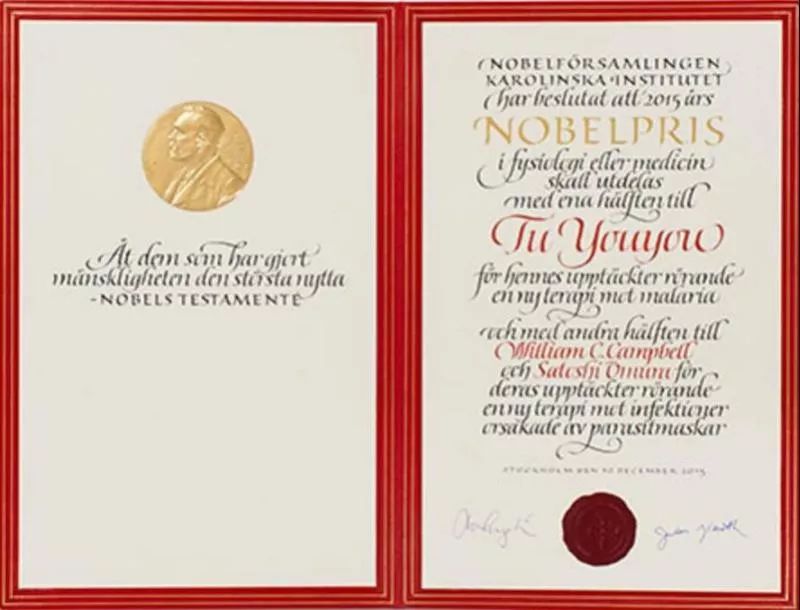 Åt dem som har gjort
mänskligheten den största nytta
- NOBELS TESTAMENTE
NOBELFÖRSAMLINGEN
KAROLINSKA INSTITUTET
har beslutat att 2015 års
NOBELPRIS
i fysiologi eller medicin
skall utdelas
med ena hälften till
Tu Youyou
för hennes upptäckter rörande
en ny terapi mot malaria
och med andra hälften till
William C. Campbell
och Satoshi Ōmura för
deras upptäckter rörande
en ny terapi mot infektioner
orsakade av parasitmaskar
STOCKHOLM DEN 10 DECEMBER 2015